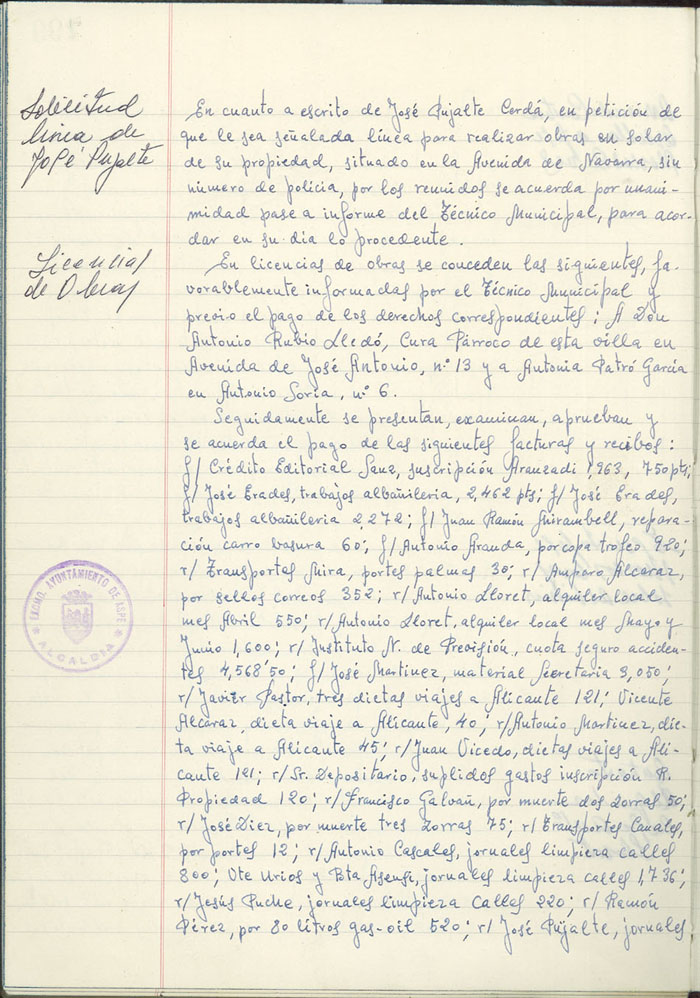 Solicitud
linea de
José Pujalte
En cuanto a escrito de José Pujalte Cerdá, en petición de
que le sea señalada línea para realizar obras en solar
de su propiedad, situado en la Avenida de Navarra, sin
número de policía, por los reunidos se acuerda por unani-
midad pase a informe del Técnico Municipal, para acor-
dar en su día lo procedente.
Licencias
de Obras
En licencias de obras se conceden las siguientes, fa-
vorablemente informadas por el Técnico Municipal y
previo el pago de los derechos correspondientes: A Don
Antonio Rubio Lledó, Cura Párroco de esta villa en
Avenida de José Antonio, nº 13 y a Antonia Patró García
en Antonio Soria, nº 6.
Seguidamente se presentan, examinan, aprueban y
se acuerda el pago de las siguientes facturas y recibos:
f/ Crédito Editorial Sanz, suscripción Aranzadi 1,963, 750 pts;
f/ José Erades, trabajos albañileria, 2,462 pts; f/ José Erades,
trabajos albañileria 2,272; f/ Juan Ramón Mirambell, repara-
ción carro basura 60; f/ Antonio Aranda, por copa trofeo 920;
r/ Transportes Mira, portes palmas 30; r/ Amparo Alcaraz,
por sellos correos 352; r/ Antonio Lloret, alquiler local
mes Abril 550; r/ Antonio Lloret, alquiler local mes Mayo y
Junio 1,600; r/ Instituto N. de Previsión, cuota seguro acciden-
tes 4,568'50; f/ José Martinez, material Secretaria 3,050;
r/ Javier Pastor, tres dietas viajes a Alicante 121; Vicente
Alcaraz, dieta viaje a Alicante, 40; r/ Antonio Martinez, die-
ta viaje a Alicante 45; r/ Juan Vicedo, dietas viajes a Ali-
cante 121; r/ Sr. Depositario, suplidos gastos inscripción R.
Propiedad 120; r/ Francisco Galvañ, por muerte dos zorras 50;
r/ José Diez, por muerte tres zorras 75; r/ Transportes Canales,
por portes 12; r/ Antonio Cascales, jornales limpieza calles
800; Vte Urios y Bta Asensi, jornales limpieza calles 1,736;
r/ Jesús Puche, jornales limpieza calles 220; r/ Ramón
Pérez, por 80 litros gas-oil 520; r/ José Pujalte, jornales
EXCMO. AYUNTAMIENTO DE ASPE
* ALCALDIA *